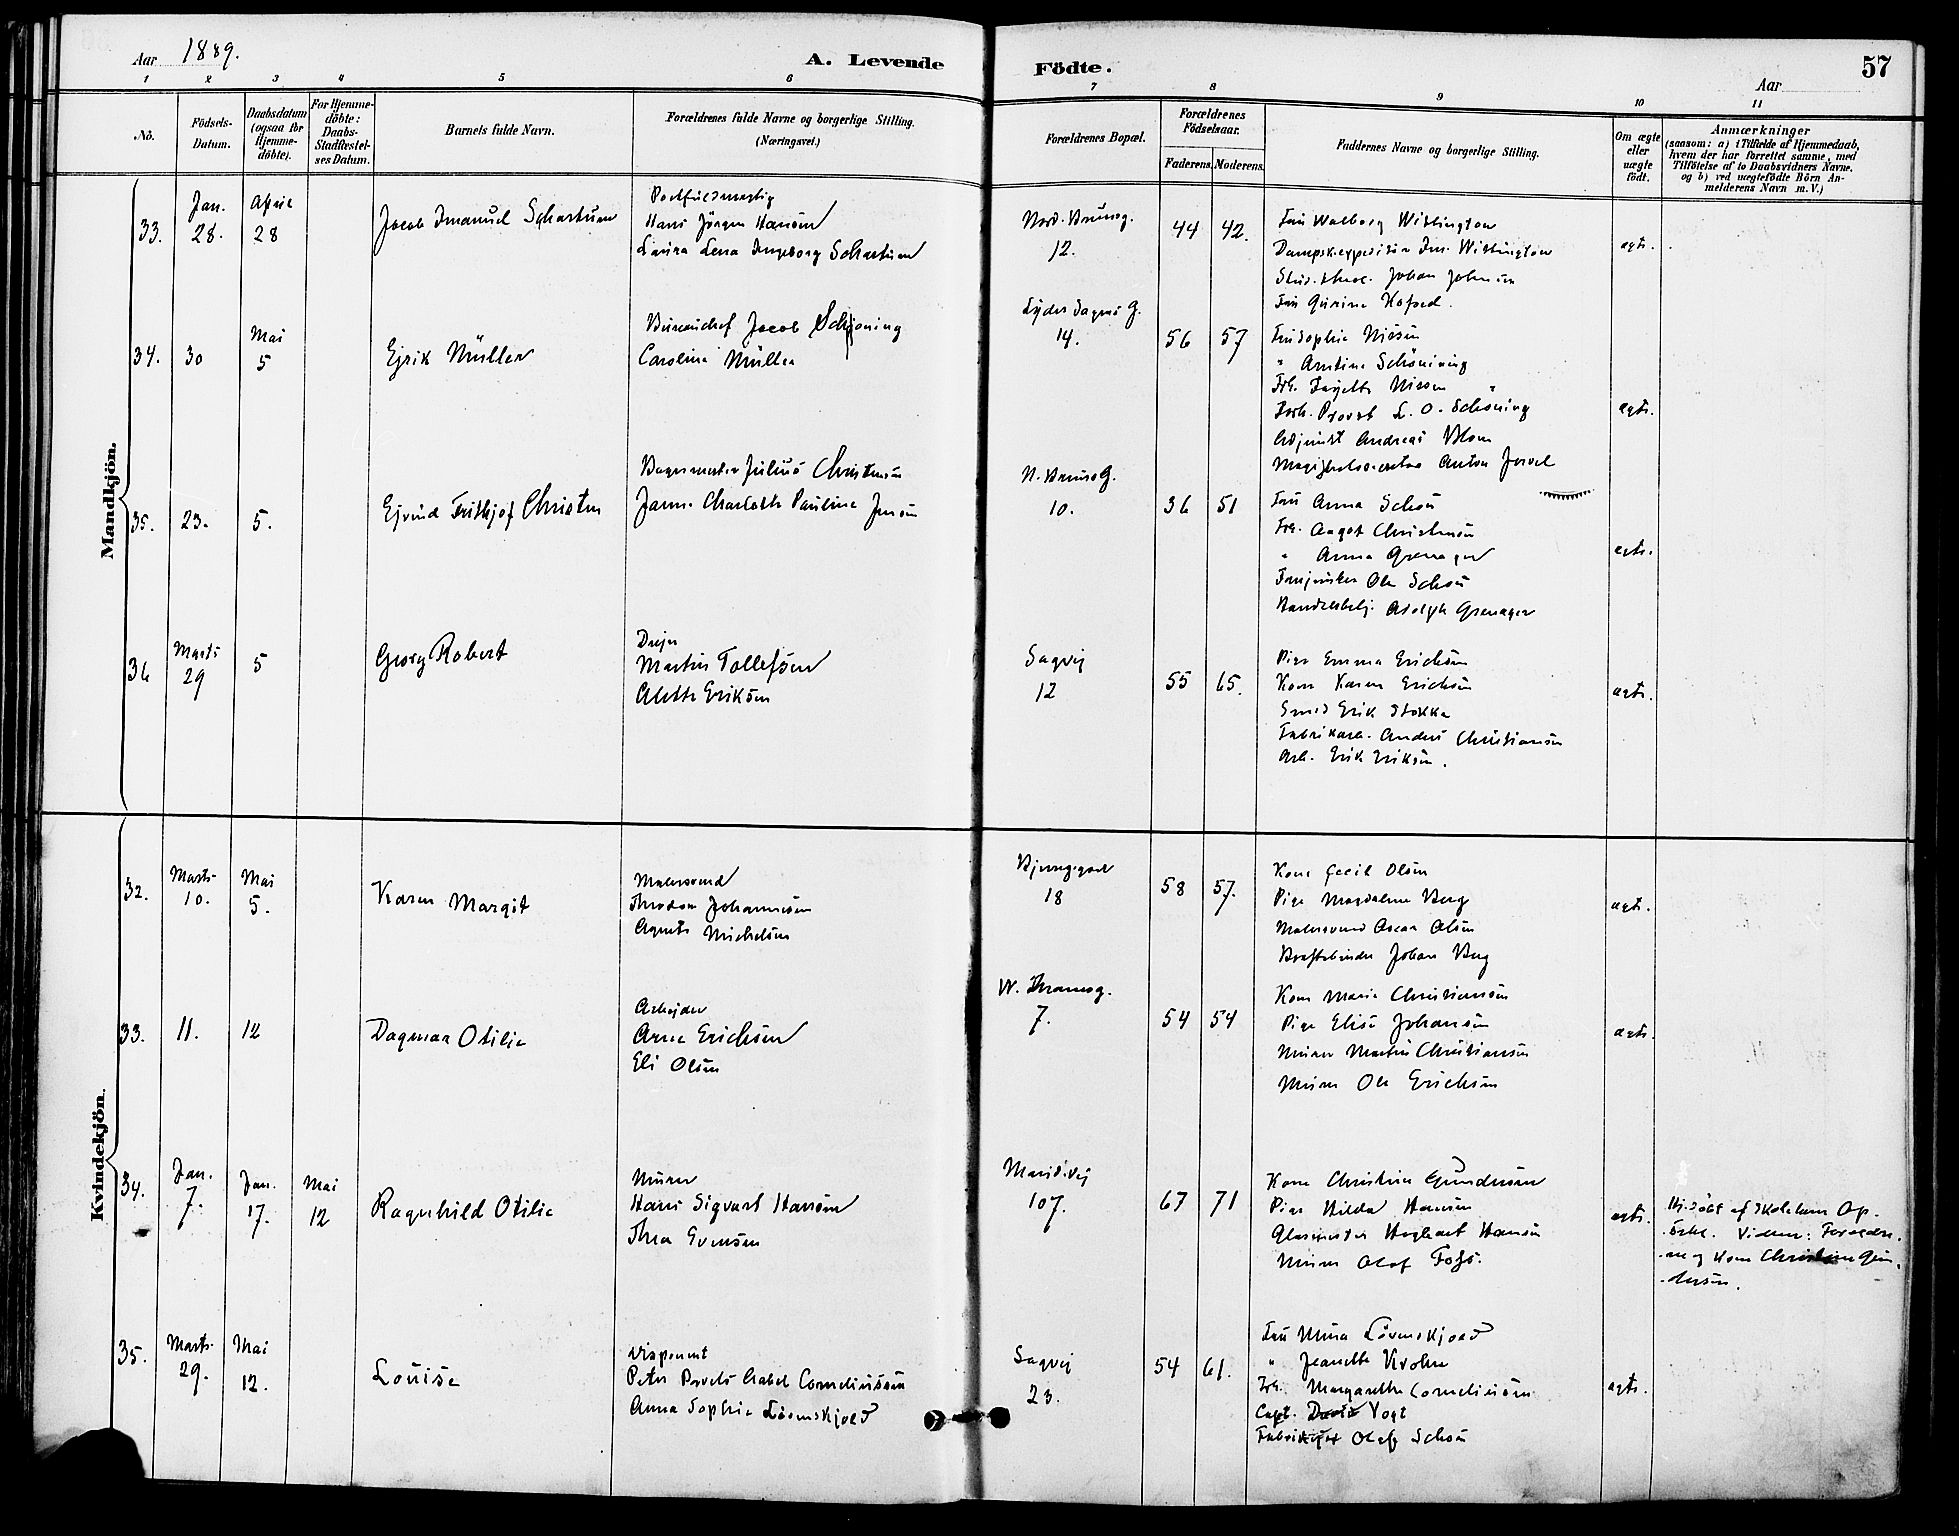 Aar 1889.
A. Levende Födte.
Aar
57
1 2 3 4 5 6 7 8 9 10 11
No.
Födsels-Datum.
Daabsdatum (ogsaa for Hjemme-döbte).
For Hjemme-döbte: Daabs-Stadfæstel-ses Datum.
Barnets fulde Navn.
Forældrenes fulde Navne og borgerlige Stilling. (Næringsvei.)
Forældrenes Bopæl.
Forældrenes Födselsaar.
Faderens. Moderens.
Faddernes Navne og borgerlige Stilling.
Om ægte eller uægte födt.
Anmærkninger (saasom: a) i Tilfælde af Hjemmedaab, hvem der har forrettet samme, med Tilföielse af to Daabsvidners Navne, og b) ved uægtefödte Börn An-melderens Navn m. V.)
Mandkjön.
33. Jan. 28. April 28
Jacob Imanuel Schartum
Postfuldmægtig
Hans Jörgen Hansön
Laura Lena Ingeborg Schartum
Nord. Brunsg. 12.
44 42.
Fru Walborg Wittington
Dampsk.expeditör Wittington
Stud. theol. Johan Johnsön
Fru Gurine Kofoed.
ægte.
34. 30 Mai 5
Ejrik Müller
Bureauchef Jacob Schjöning
Caroline Müller
Lyder Sagens G. 14.
56 57
Fru Sophie Nissen
" Antine Schöning
Frk. Nissen
Provst L. O. Schöning
Adjunkt Andreas Blom
Anton
ægte.
35. 23. 5.
Ejvind Frithjof Christen
Bagermester Julius Christensen
Charlotte Pauline Jensen
N. Bruns G. 10.
36 51
Fru Anna Schou
Frk. Aagot Christensen
" Anna Grenager
Ole Schou
Adolph Grenager
ægte.
36 Marts 29 5
Georg Robert
Drejer
Martin Tollefsen
Alette Eriksen
Sagvej 12
55 65.
Pige Emma Ericksen
Kone Karen Ericksen
Smed Erik Stokke
Fabrikarb. Anders Christiansen
Arb. Erik Eriksen.
ægte.
Kvindekjön.
32. Marts 10. Mai 5.
Karen Margit
Malersvend
Theodor Johannesen
Agnete Michelsen
18
58 57.
Kone Cecil Olsen
Pige Magdalene Berg
Malersvend Oscar Olsen
Johan Berg
ægte.
33. 11. 12
Dagmar Otilie
Arbejder
Arne Ericksen
Eli Olsen
7.
54 54
Kone Maria Christiansen
Pige Elise Johansen
Murer Martin Christiansen
Murer Ole Ericksen
ægte.
34. Jan. 7. Jan. 17. Mai 12
Ragnhild Otilie
Murer
Hans Sigvart Hansön
Thea Evensen
Marid.vej 107.
67 71
Kone Christine Gundersen
Pige Hilda Hansen
Glasmester Hansen
Murer Olaf Foss.
ægte.
Hj.döbt af
Vidner: Foræld-
re og Kone Christine Gun-
dersen.
35. Marts 29. Mai 12.
Louise
Disponent
Peter Gabel Corneliussen
Anna Sophie Lövenskjold
Sagvej 23.
54 61.
Fru Mina Lövenskjold
" Jeanette Krohn
Frk. Margarethe Corneliussen
Capt. Vogt
Olaf Schou
ægte.